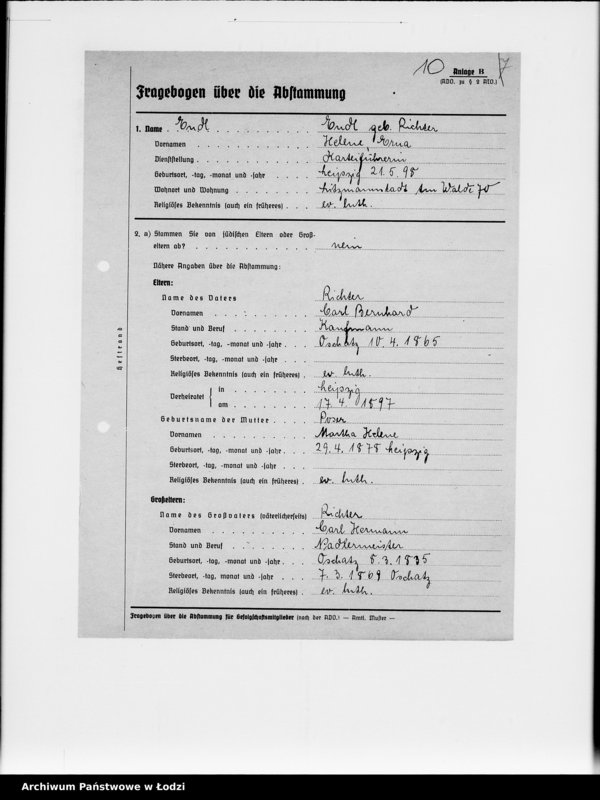 10
7
Anlage B
(ADO. zu § 2 ATO.)
Fragebogen über die Abstammung
1. Name . Endl . . . . . . . . . Endl geb. Richter
Vornamen . . . . . . . . . . . . Helene, Erna
Dienststellung . . . . . . . . . . . Karteiführerin
Geburtsort, -tag, -monat und -jahr . . . Leipzig 21.5.98
Wohnort und Wohnung . . . . . . . Litzmannstadt Am Walde 70
Religiöses Bekenntnis (auch ein früheres) . . . ev. luth.
2. a) Stammen Sie von jüdischen Eltern oder Groß-
eltern ab? . . . . . . . . . . . . nein
Nähere Angaben über die Abstammung:
Eltern:
Name des Vaters Richter
Vornamen . . . . . . . . . . Carl Bernhard
Stand und Beruf . . . . . . . . Kaufmann
Geburtsort, -tag, -monat und -jahr . . . Oschatz 10.4.1865
Sterbeort, -tag, -monat und -jahr . . .
Religiöses Bekenntnis (auch ein früheres) . ev. luth.
Verheiratet { in . . . . . . . . Leipzig
am . . . . . . . . 17.4. 1897
Geburtsname der Mutter . . . . Poser
Vornamen . . . . . . . . . . Martha Helene
Geburtsort, -tag, -monat und -jahr . . . 29.4.1878 Leipzig
Sterbeort, -tag, -monat und -jahr . . .
Religiöses Bekenntnis (auch ein früheres) . ev. luth.
Großeltern:
Name des Großvaters (väterlicherseits) Richter
Vornamen . . . . . . . . . . Carl Hermann
Stand und Beruf . . . . . . . . Nadlermeister
Geburtsort, -tag, -monat und -jahr . . . Oschatz 5.3.1835
Sterbeort, -tag, monat und -jahr . . . 7.3.1869 Oschatz
Religiöses Bekenntnis (auch ein früheres) . ev. luth.
Heftrand
Fragebogen über die Abstammung für Gefolgschaftsmitglieder (nach der ADO.) — Amtl. Muster —
Archiwum Państwowe w Łodzi